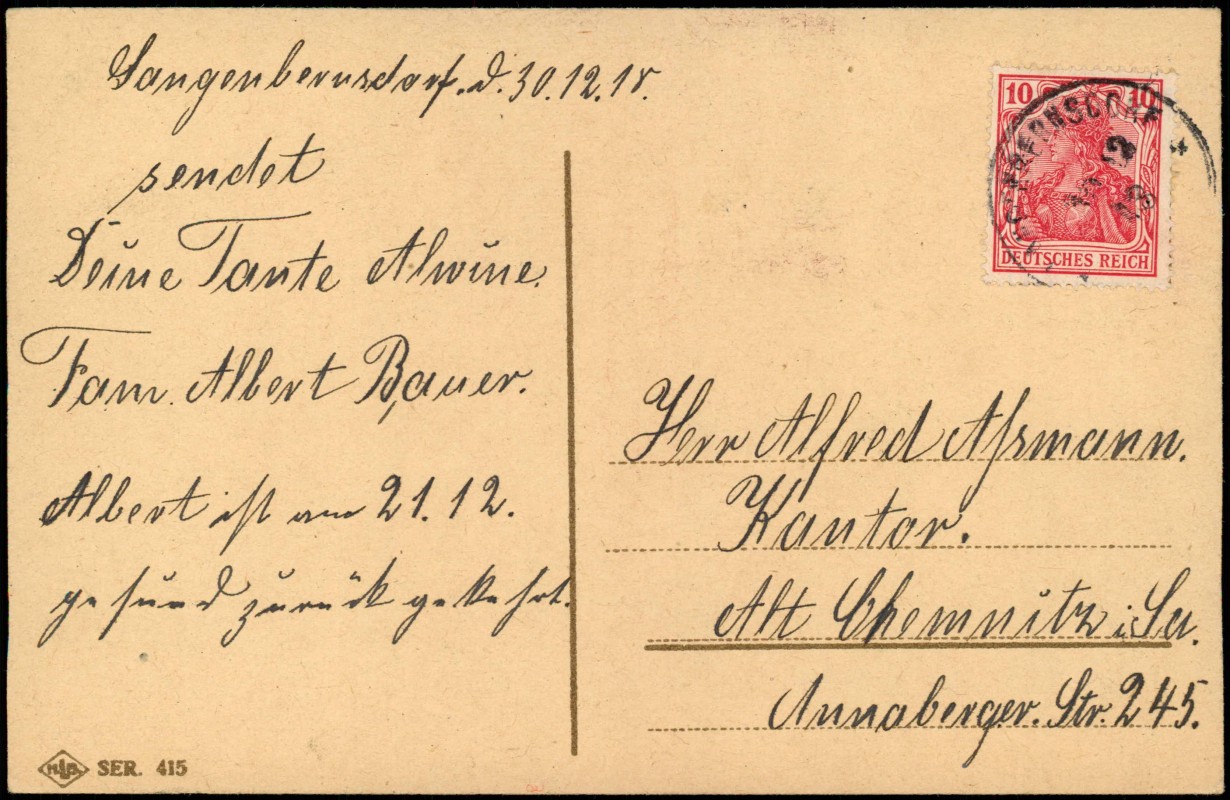 Langenbernsdorf. d. 30.12.18.
sendet
Deine Tante Alwine.
Fam. Albert Bauer.
Albert ist am 21.12.
gesund zurück gekehrt.
10 10
DEUTSCHES REICH
Herr Alfred Aßmann.
Kantor.
Alt Chemnitz i. Sa.
Annaberger. Str. 245.
SER. 415